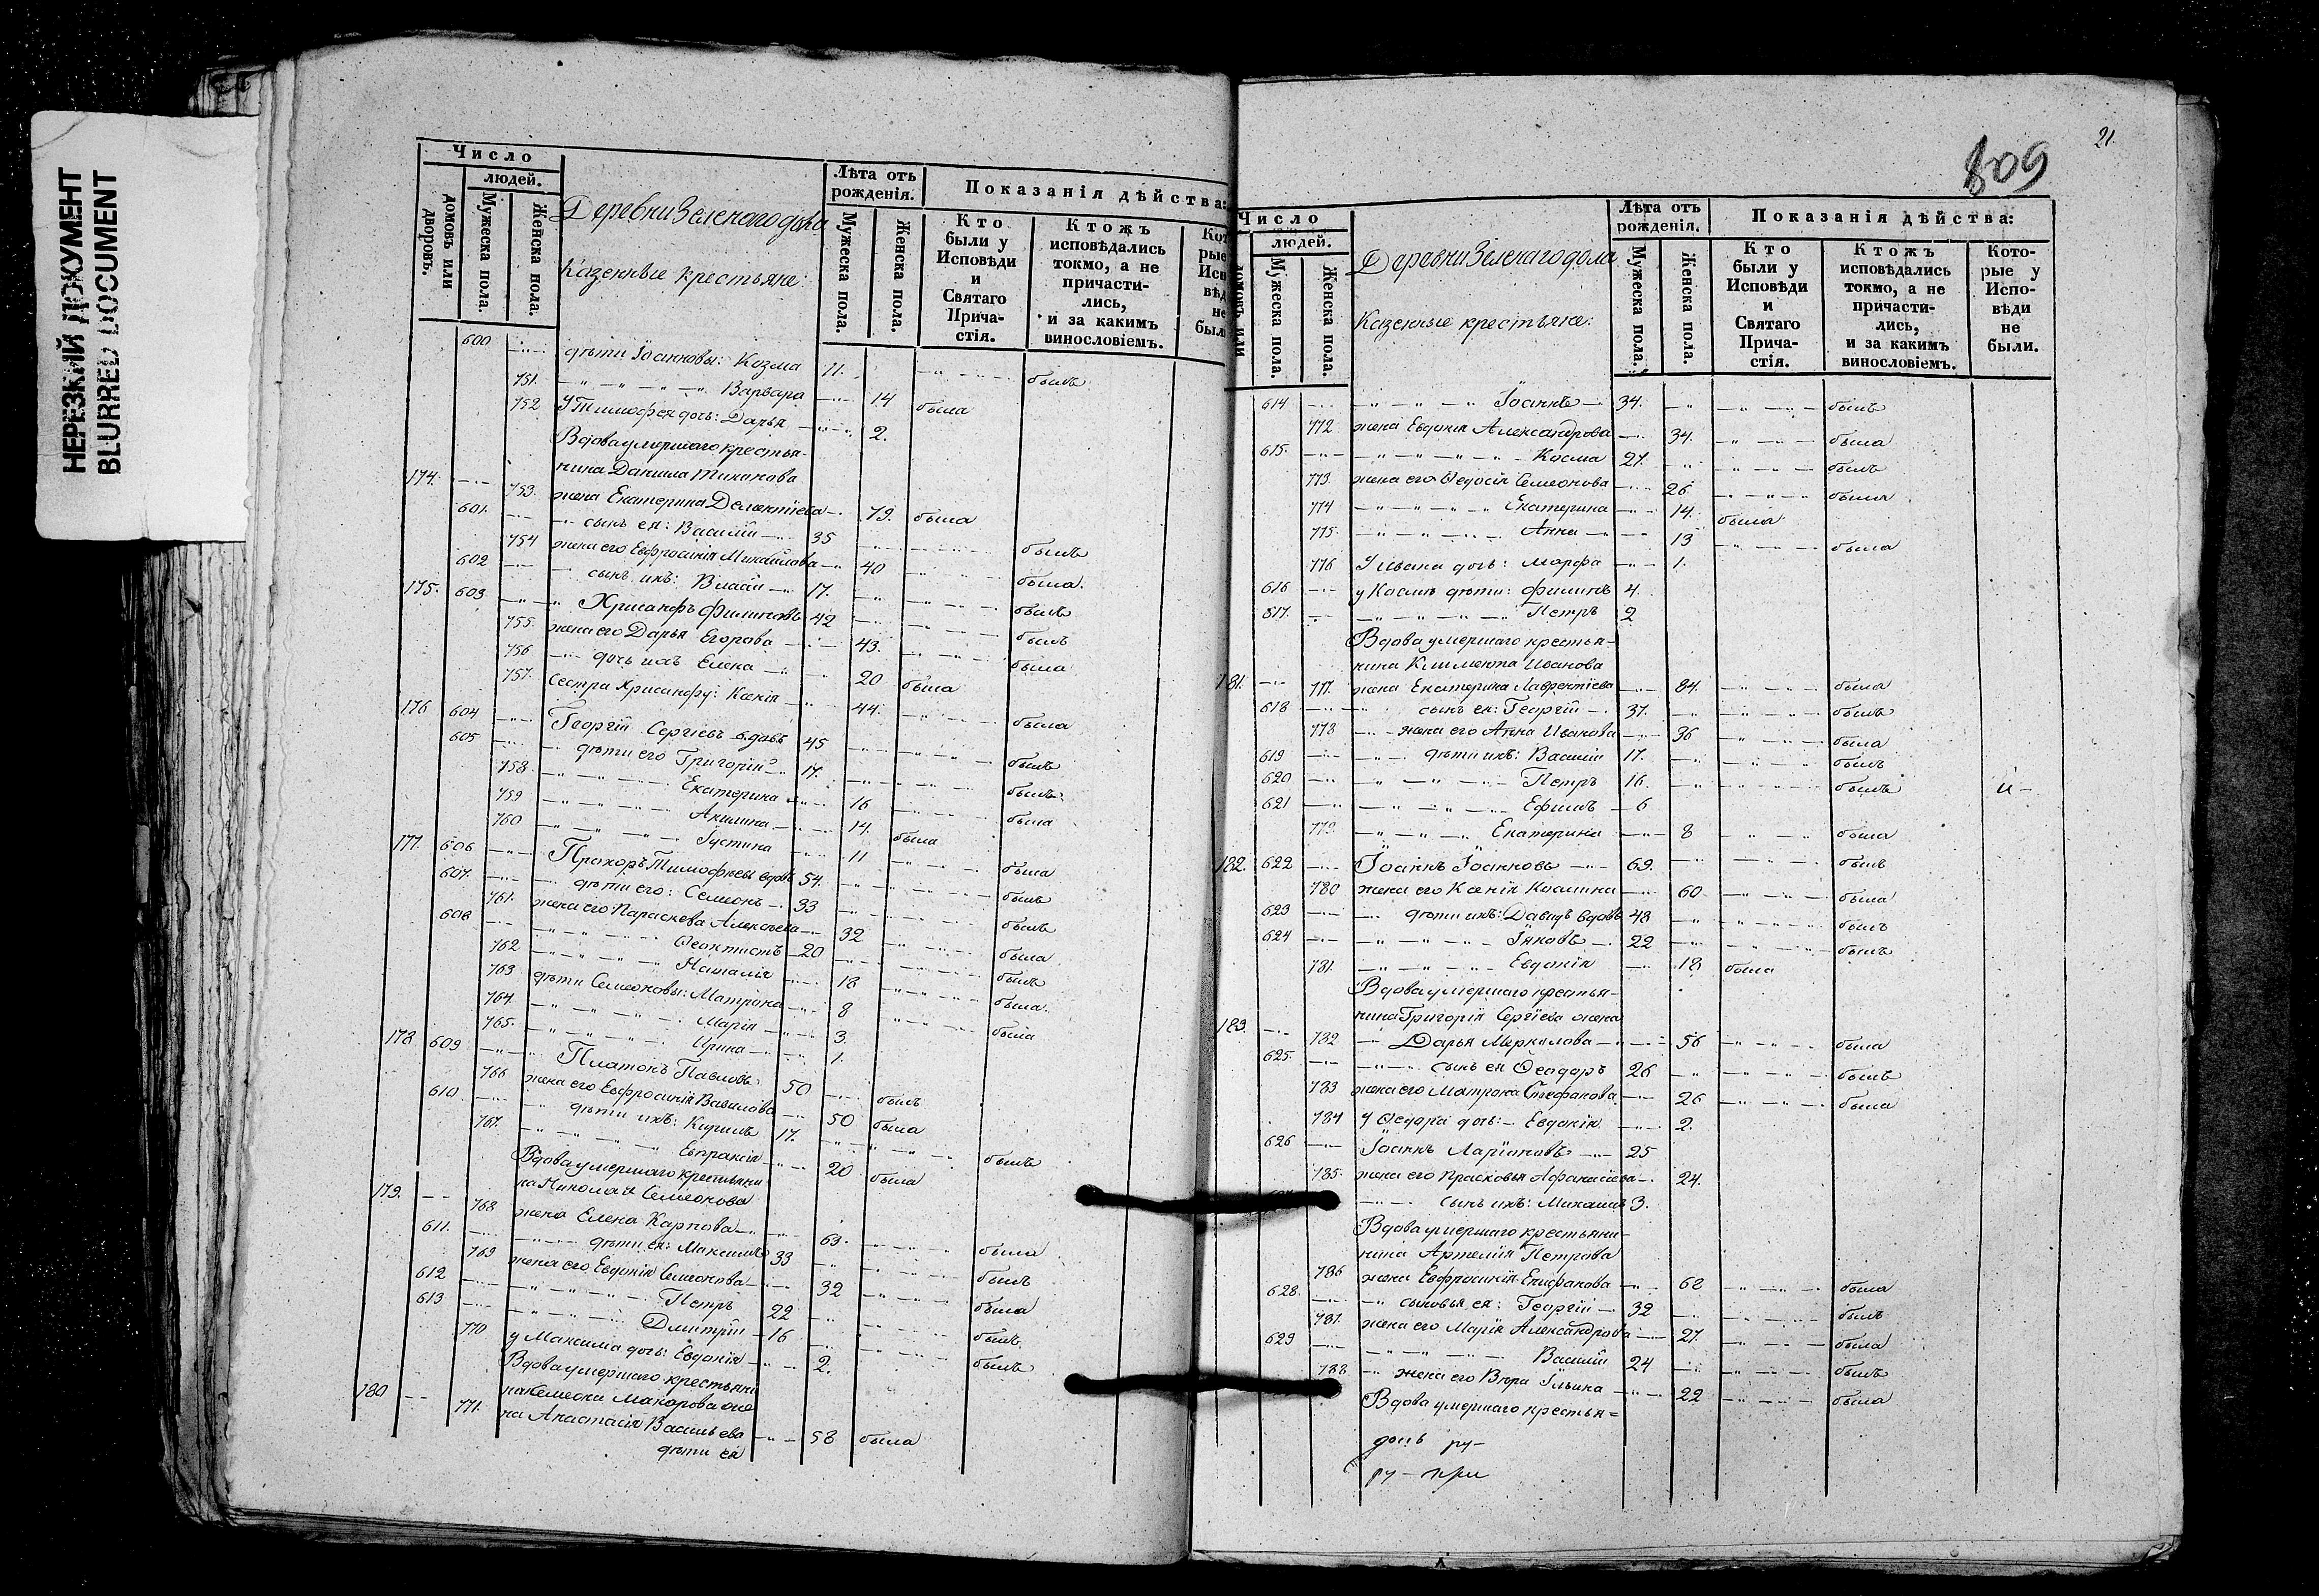 НЕРЕЗКИЙ ДОКУМЕНТ
BLURRED DOCUMENT
Число
людей.
домовъ или дворовъ.
Мужеска пола.
Женска пола.
Деревни Зеленагодола
Казенные крестьяне:
Лѣта отъ рожденія.
Мужеска пола.
Женска пола.
Показанія дѣйства:
Кто были у Исповѣди и Святаго Прича-стія.
Ктожъ исповѣдались токмо, а не причасти-лись, и за какимъ винословіемъ.
600 дѣти Іоанновы: Козма 11. былъ
751. Варвара 14 была
752 У Тимофея дочь: Дарья 2.
Вдова умершаго крестья-
нина Данила Тиханова
174. 753. жена Екатерина 79. была
601. сынъ ея: Василій 35 былъ
754 жена его Евфросинія Михайлова 40 была
602 сынъ ихъ: Власій 17. былъ
175. 603 Хрисанфъ Филиповъ 42 былъ
755. жена его Дарья Егорова 43. была
756 дочь ихъ Елена 20 была
757. Сестра Хрисанфу: Ксенія 44. была
176 604 Георгій Сергіевъ вдовъ 45 былъ
605 дѣти его Григорій 17. былъ
758. Екатерина 16 была
759 Акилина 14. была
760 Іустина 11 была
177. 606 Прохоръ Тимофѣевъ вдовъ 54. былъ
607. дѣти его: Семеонъ 33 былъ
761. жена его Параскева Алексѣева 32 была
608 Ѳеоктистъ 20 былъ
762 Наталія 18 была
763 дѣти Семеоновы: Матрона 8 была
764. Марія 3.
765. Ирина 1.
178 609 Платонъ Павловъ 50 былъ
766 жена его Евфросинія Вавилова 50 была
610 дѣти ихъ: Кирилъ 17. былъ
767. Евпраксія 20 была
Вдова умершаго крестьяни
на Николая Семеонова
179. 768 жена Елена Карпова 63. была
611. дѣти ея: Максимъ 33 былъ
769 жена его Евдокія Семеонова 32 была
612 Петръ 22 былъ
613 Димитрій 16 былъ
770 у Максима дочь: Евдокія 2.
Вдова умершаго крестьяни
на Семеона Макарова же
180 771. на Анастасія Васильева 58 была
дѣти ея
21.
809
Число
людей.
домовъ или
Мужеска пола.
Женска пола.
Деревни Зеленагодола
Казенные крестьяне:
Лѣта отъ рожденія.
Мужеска пола.
Женска пола.
Показанія дѣйства:
Кто были у Исповѣди и Святаго Прича-стія.
Ктожъ исповѣдались токмо, а не причасти-лись, и за какимъ винословіемъ.
Кото-рые у Испо-вѣди не были.
614 Іоаннъ 34. былъ
772 жена Евдокія Александрова 34. была
615. Косма 27. былъ
773. жена его Ѳедосія Семеонова 26 была
774 Екатерина 14. была
775. Анна 13 была
776 У Ивана дочь: Марфа 1.
616 у Космы дѣти: Филипъ 4.
817. Петръ 2
Вдова умершаго крестья-
нина Климента Иванова
181. 777. жена Екатерина Лаврентіева 84. была
618 сынъ ея: Георгій 37. былъ
778 жена его Анна Иванова 36 была
619 дѣти ихъ: Василій 17. былъ
620 Петръ 16. былъ
621 Ефимъ 6
779. Екатерина 8 была
182. 622 Іоаннъ Іоанновъ 69. былъ
780 жена его Ксенія Космина 60 была
623 дѣти ихъ: Давидъ вдовъ 48 былъ
624 Іяковъ 22 былъ
781. Евдокія 18 была
Вдова умершаго крестья-
нина Григорія Сергіева жена
183. 782 Дарья Меркулова 56 была
625. сынъ ея Ѳеодоръ 26 былъ
783 жена его Матрона Стефанова 26 была
784 У Ѳедора дочь: Евдокія 2.
626 Іоаннъ Ларіоновъ 25
785. жена его Прасковья Афанасіева 24.
сынъ ихъ: Михаилъ 3.
Вдова умершаго крестьяни-
нина Артемія Петрова
786 жена Евфросинія Епифанова 62 была
628. сыновья ея: Георгій 32 былъ
787. жена его Марія Александрова 27. была
629 Василій 24 былъ
788 жена его Вѣра Ильина 22 была
Вдова умершаго крестья=